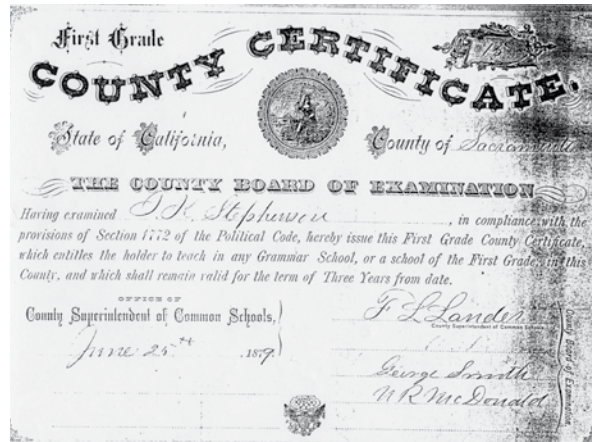 First Grade
COUNTY CERTIFICATE.
State of California,
County of Sacramento
THE COUNTY BOARD OF EXAMINATION
Having examined Stephenson, in compliance with the
provisions of Section 1772 of the Political Code, hereby issue this First Grade County Certificate,
which entitles the holder to teach in any Grammar School, or a school of the First Grade, in this
County, and which shall remain valid for the term of Three Years from date.
OFFICE OF
County Superintendent of Common Schools,
June 25th, 1879.
F L Lander
County Superintendent of Common Schools.
George Smith
McDonald
County Board of Examination